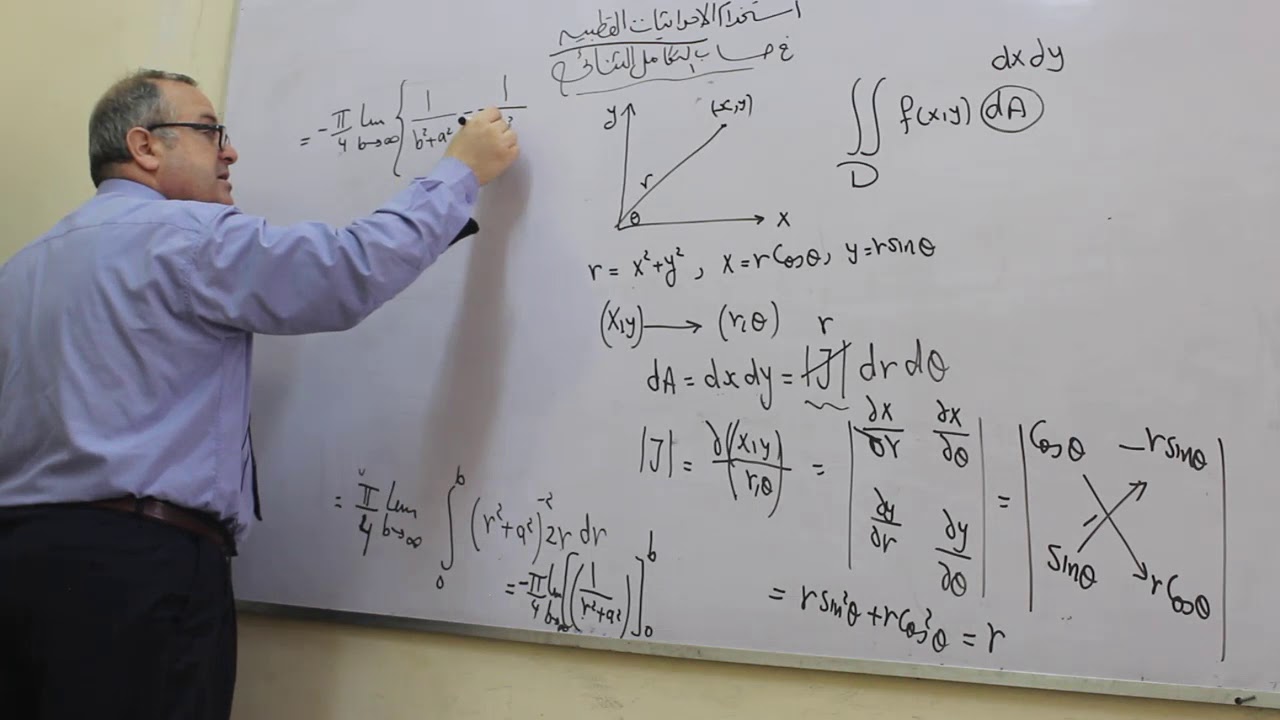 استخدام الاحداثيات القطبيه
في حساب التكامل الثنائي
dx dy
∬_D f(x,y) dA
y
(x,y)
r
θ
x
r = x²+y² , x = r Cosθ , y = r sinθ
(x,y) ⟶ (r,θ)
r
dA = dx dy = |J| dr dθ
|J| = ∂(x,y)/(r,θ) = | ∂x/∂r ∂x/∂θ ; ∂y/∂r ∂y/∂θ | = | Cosθ −r sinθ ; sinθ r Cosθ |
= r sin²θ + r Cos²θ = r
= −π/4 Lim b→∞ { 1/(b²+a²) − 1/
= π/4 Lim b→∞ ∫₀ᵇ (r²+a²)⁻² 2r dr
= −π/4 Lim b→∞ [(1/(r²+a²))]₀ᵇ